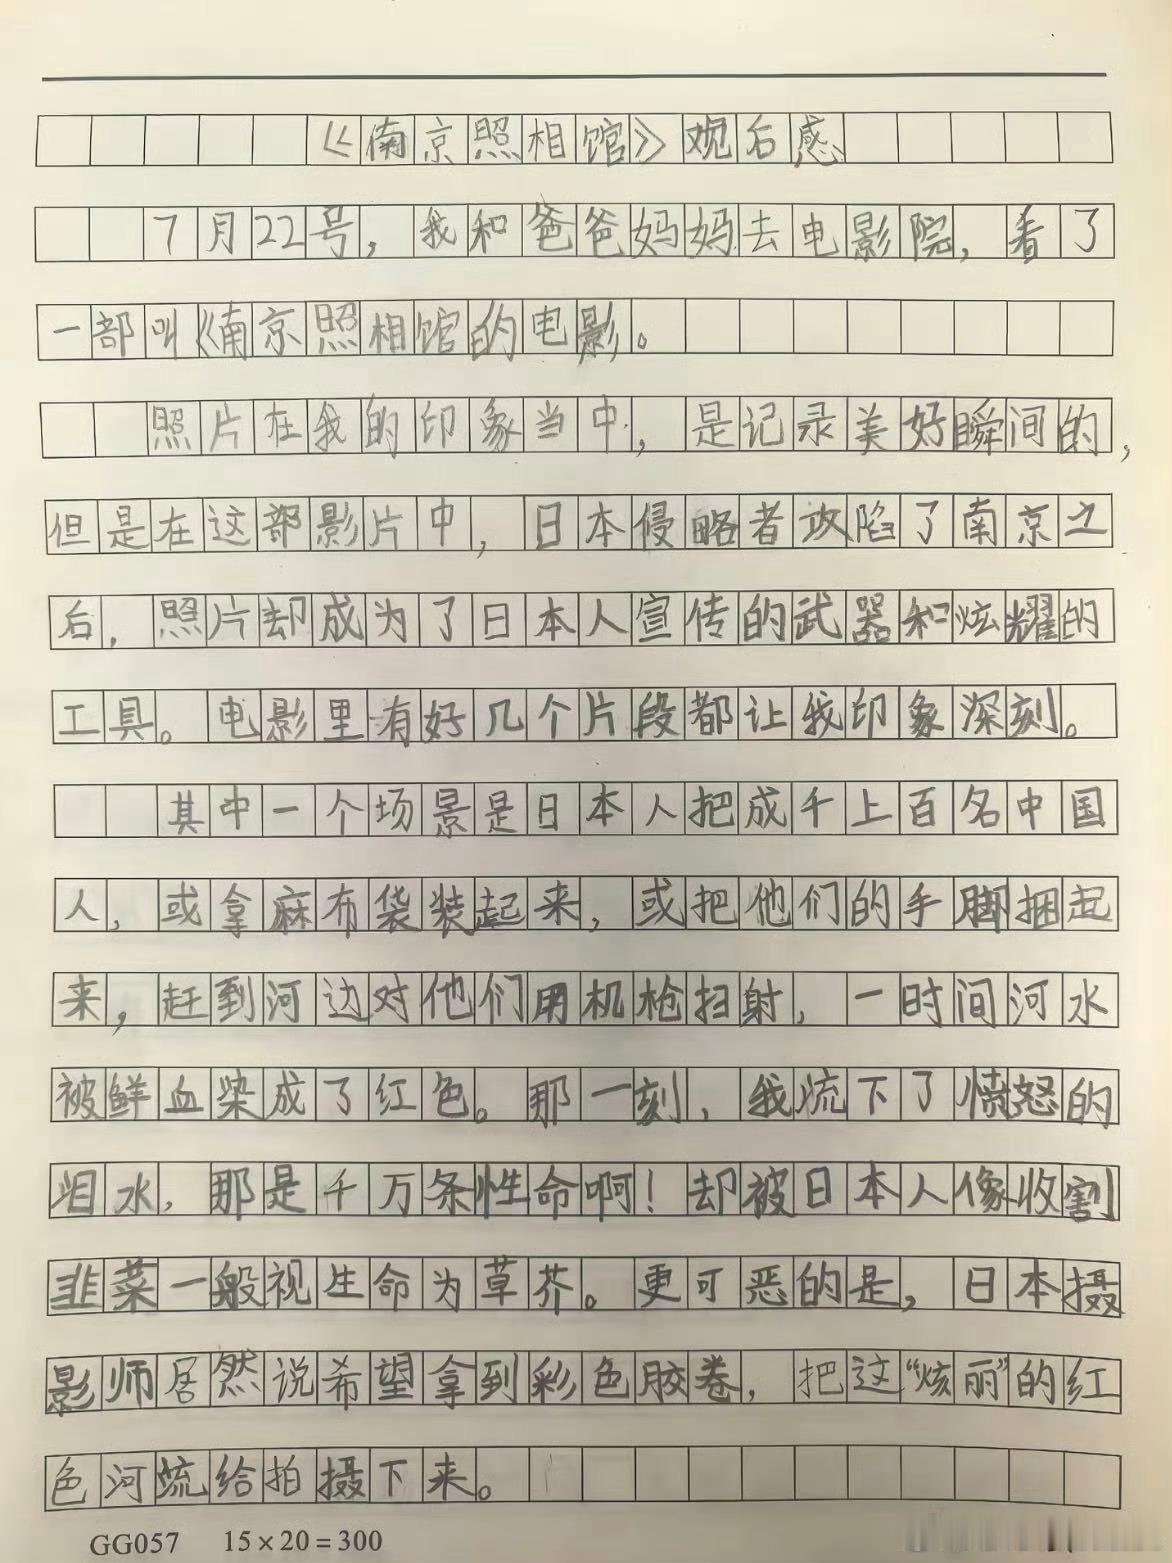 《南京照相馆》观后感
7月22号，我和爸爸妈妈去电影院，看了
一部叫《南京照相馆的电影。
照片在我的印象当中，是记录美好瞬间的，
但是在这部影片中，日本侵略者攻陷了南京之
后，照片却成为了日本人宣传的武器和炫耀的
工具。电影里有好几个片段都让我印象深刻。
其中一个场景是日本人把成千上百名中国
人，或拿麻布袋装起来，或把他们的手脚捆起
来，赶到河边对他们用机枪扫射，一时间河水
被鲜血染成了红色。那一刻，我流下了愤怒的
泪水，那是千万条性命啊！却被日本人像收割
韭菜一般视生命为草芥。更可恶的是，日本摄
影师居然说希望拿到彩色胶卷，把这“炫丽”的红
色河流给拍摄下来。
GG057 15×20=300